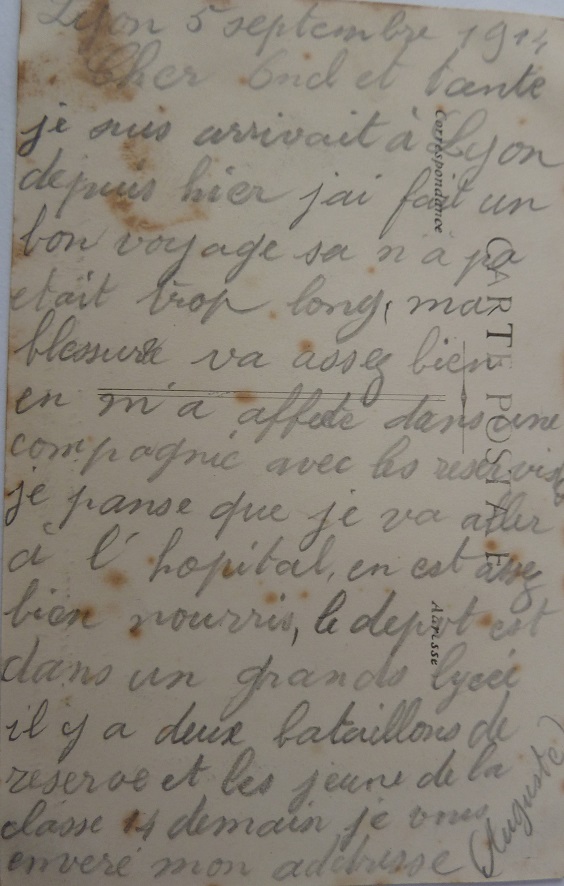 Lyon 5 septembre 1914
Cher Oncl et tante
je suis arrivait à Lyon
depuis hier jai fait un
bon voyage sa n'a pa
etait trop long, ma
blessure va assez bien
en m'a affecte dans une
compagnie avec les reserviste
je panse que je va aller
à l'hopital, en est assez
bien nourris, le depot est
dans un grands lycée
il y a deux bataillons de
reserve et les jeune de la
classe 14 demain je vous
enveré mon addresse (Auguste)
CARTE POSTALE
Correspondance
Adresse